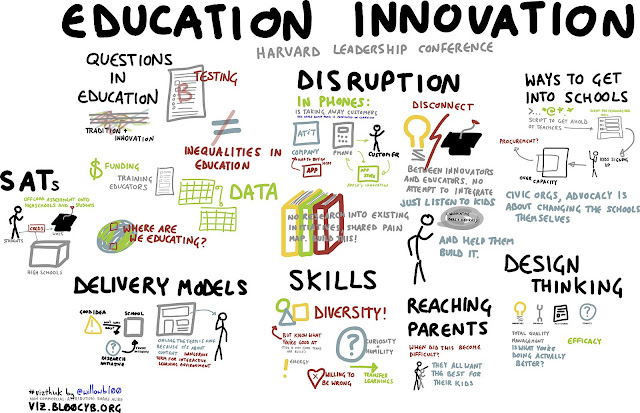 EDUCATION INNOVATION
HARVARD LEADERSHIP CONFERENCE
QUESTIONS
IN
EDUCATION
TRADITION +
INNOVATION
B
TESTING
INEQUALITIES IN
EDUCATION
$ FUNDING
TRAINING
EDUCATORS
DATA
WHERE ARE
WE EDUCATING?
SATs
OFFLOAD ASSESSMENT ONTO
HIGHSCHOOLS AND STUDENTS
STUDENTS
COSTS
UNIS
HIGH SCHOOLS
DISRUPTION
IN PHONES:
IS TAKING AWAY CUSTOMERS
AT&T
COMPANY
PHONE
CUSTOMER
APP
APP
STORE
DISCONNECT
BETWEEN INNOVATORS
AND EDUCATORS. NO
ATTEMPT TO INTEGRATE
JUST LISTEN TO KIDS
AND HELP THEM
BUILD IT.
NO RESEARCH INTO EXISTING
INITIATIVES SHARED PAIN
MAP. BUILD THIS!
WAYS TO GET
INTO SCHOOLS
SCRIPT TO GET AHOLD
OF TEACHERS
PROCUREMENT?
KIDS SIGNING
UP
OVER CAPACITY
CIVIC ORGS, ADVOCACY IS
ABOUT CHANGING THE SCHOOLS
THEMSELVES
DELIVERY MODELS
GOOD IDEA
SCHOOL
RESEARCH
INITIATIVE
ONLINE THERE IS NONE
BECAUSE IT'S ABOUT
CONTENT. DANGEROUS
TERM FOR INTERACTIVE
LEARNING ENVIRONMENT
SKILLS
DIVERSITY!
BUT KNOW WHAT
YOU'RE GOOD AT
ENERGY
CURIOSITY
HUMILITY
WILLING TO
BE WRONG
TRANSFER
LEARNINGS
REACHING
PARENTS
WHEN DID THIS BECOME
DIFFICULT?
THEY ALL WANT
THE BEST FOR
THEIR KIDS
DESIGN
THINKING
TOTAL QUALITY
MANAGEMENT
IS WHAT YOU'RE
DOING ACTUALLY
BETTER?
EFFICACY
#vizthink by @willowbl00
NON COMMERCIAL ATTRIBUTION SHARE ALIKE
VIZ.BL00CYB.ORG